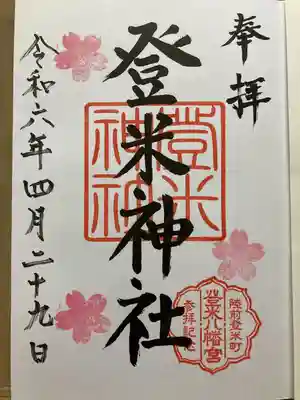 奉拝
登米神社
登米神社
陸前登米町
登米八幡宮
参拝記念
令和六年四月二十九日